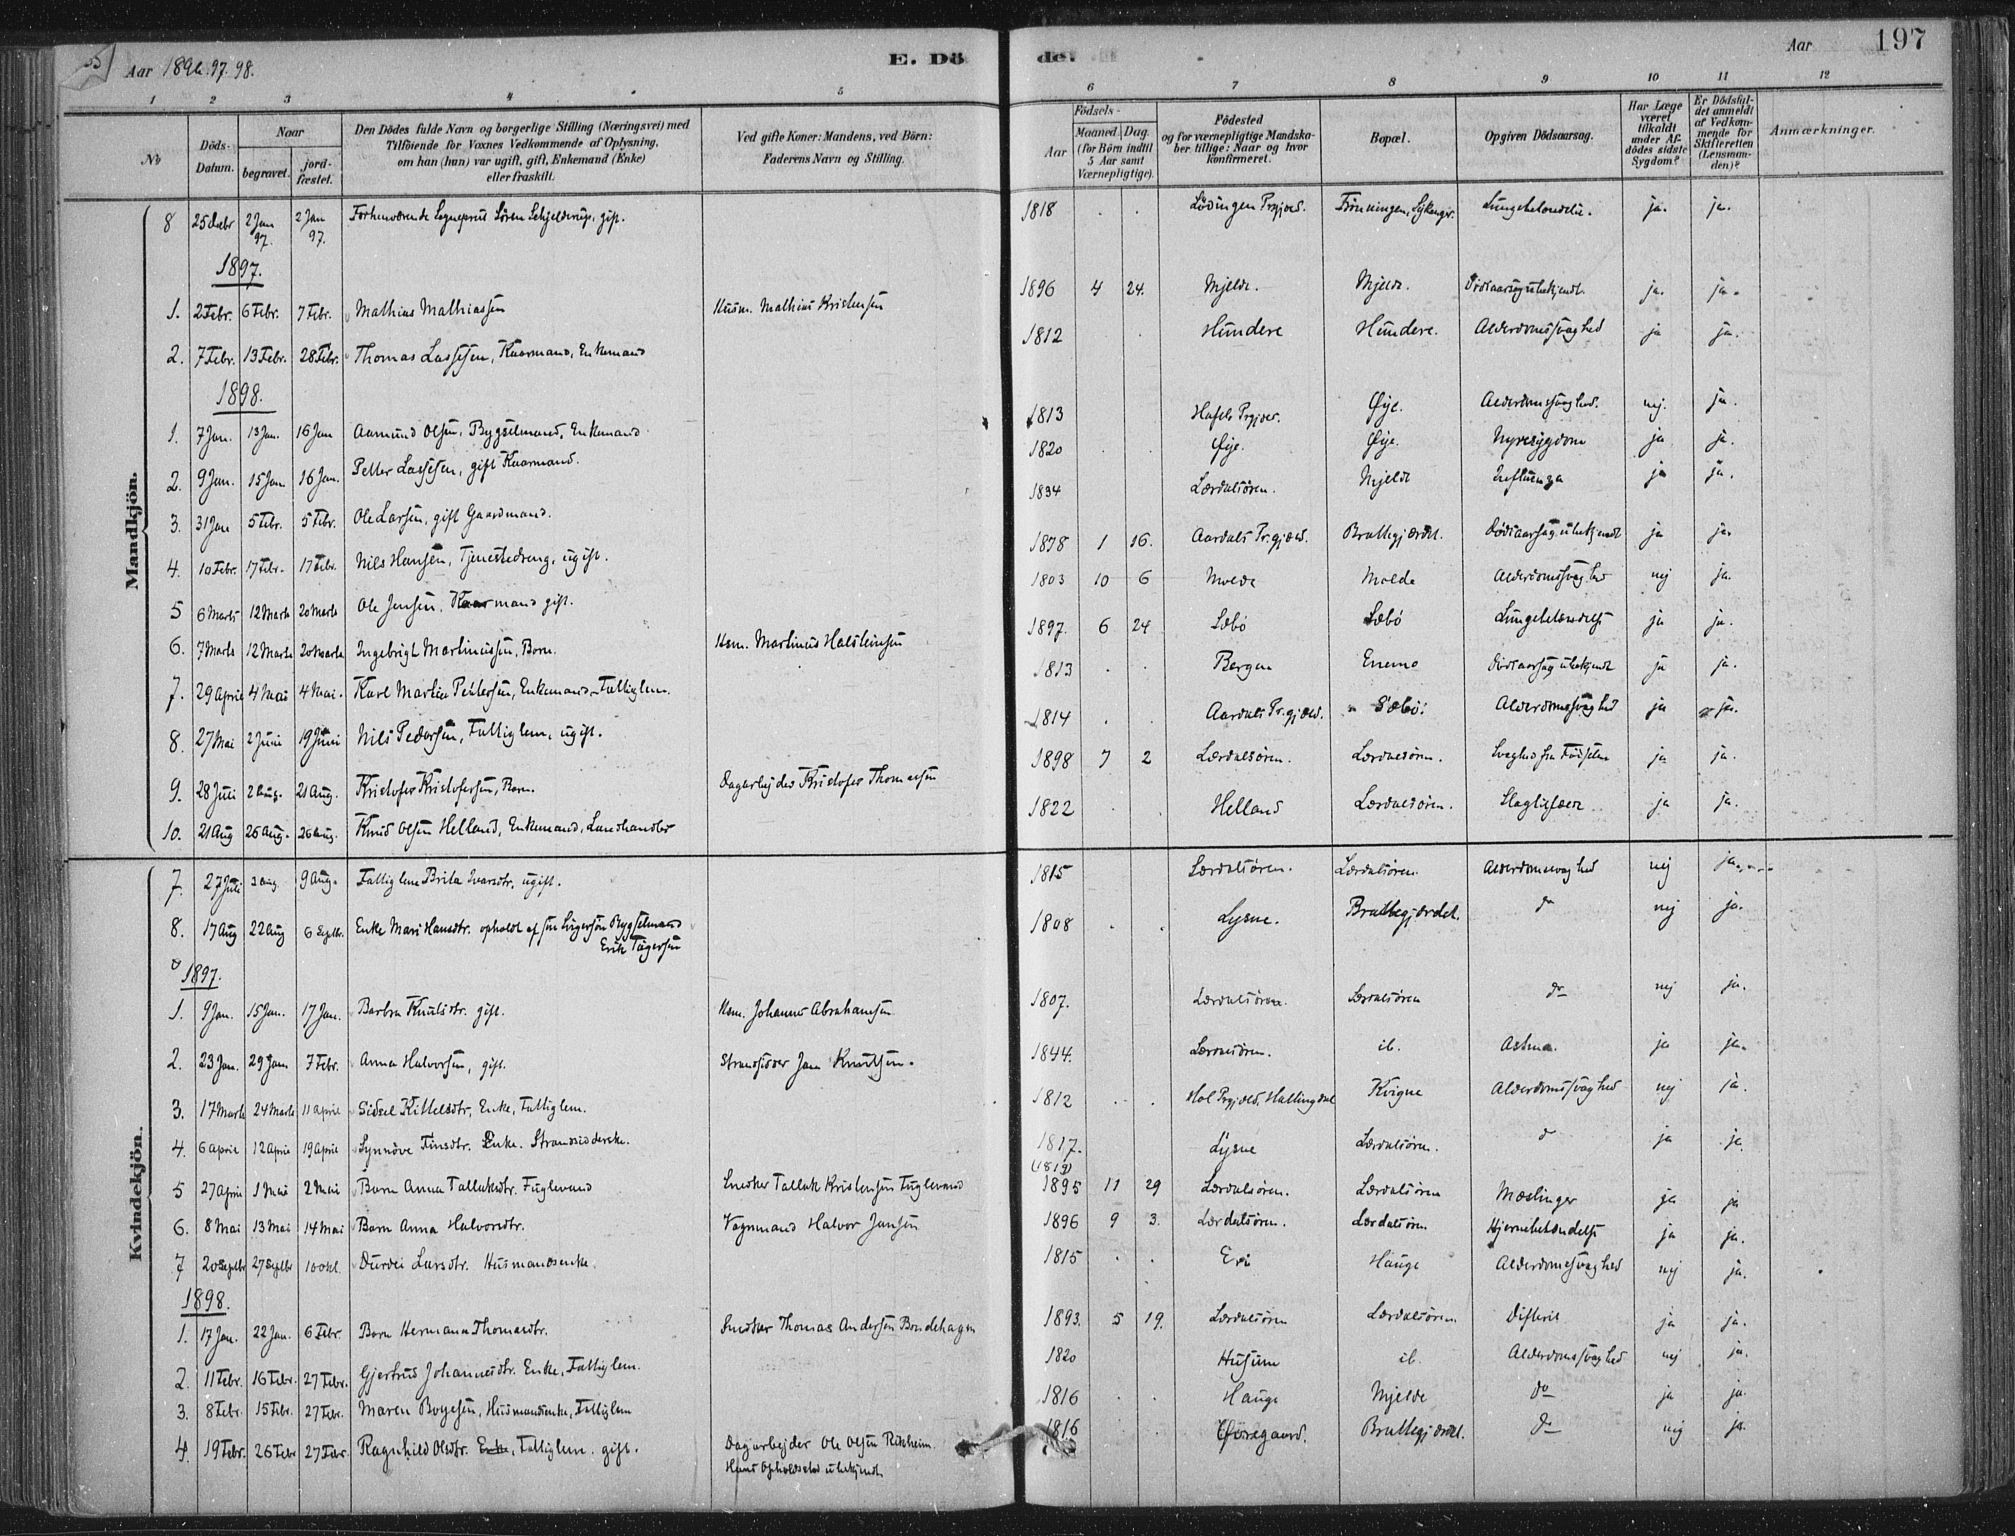 Aar 1896. 97. 98.
E. Dö
de.
Aar
197
1 2 3 4 5
6 7 8 9 10 11 12
No
Döds-Datum.
Naar
begravet.
jordfæstet.
Den Dödes fulde Navn og borgerlige Stilling (Næringsvei) med
Tilföiende for Voxnes Vedkommende af Oplysning,
om han (hun) var ugift, gift, Enkemand (Enke)
eller fraskilt.
Ved gifte Koner: Mandens, ved Börn:
Faderens Navn og Stilling.
Födsels-
Aar
Maaned. Dag.
(for Börn indtil
5 Aar samt
Værnepligtige).
Födested
og for værnepligtige Mandska-
ber tillige: Naar og hvor
konfirmeret.
Bopæl.
Opgiven Dödsaarsag.
Har Læge
været
tilkaldt
under Af-
dödes sidste
Sygdom?
Er Dödsfal-
det anmeldt
af Vedkom-
mende for
Skifteretten
(Lensman-
den)?
Anmærkninger.
Mandkjön.
8 25 Debr 2 Jan 97. 2 Jan 97. Forhenværende Sogneprest Sören Schjelderup, gift. 1818 Lödingen Prgjæld. Lungebetændelse. ja. ja.
1897.
1. 2 Febr. 6 Febr. 7 Febr. Mathias Mathiassen Husm. Mathias Kristensen 1896 4 24. Mjelde. Mjelde. Dödsaarsag ubekjendt. ja. ja.
2. 7 Febr. 13 Febr. 28 Febr. Thomas Lassesen, Kaarmand, Enkemand 1812 Hundere Hundere. Alderdomssvaghed ja ja.
1898.
1. 7 Jan. 13 Jan. 16 Jan Aamund Olsen, Bygselmand, Enkemand 1813 Hafslo Prgjæld. Øye. Alderdomssvaghed. nej. ja.
2. 9 Jan. 15 Jan 16 Jan. Petter Lassesen, gift Kaarmand. 1820 Øye. Øye. Nyresygdom ja ja.
3. 31 Jan 5 Febr. 5 Febr. Ole Larsen, gift Gaardmand. 1834 Lærdalsøren. Mjelde Influenza ja ja.
4. 10 Febr. 17 Febr. 17 Febr. Nils Hansen, Tjenestedreng, ugift. 1878 1 16. Aardals Pr.gjæld. Brattegjærdet. Dødsaarsag ubekjendt ja ja.
5 6 Marts 12 Marts 20 Marts Ole Jensen, Kaarmand gift. 1803 10 6 Molde Molde Alderdomssvaghed nej ja.
6. 7 Marts 12 Marts 20 Marts Ingebrigt Martinussen, Barn. Hsm. Martinus Halsteinsen 1897. 6 24 Sæbö Sæbö Lungebetændelse ja ja.
7. 29 April 4 Mai 4 Mai. Karl Martin Pettersen, Enkemand-Fattiglem. 1813 Bergen Enemo Dödsaarsag ubekjendt ja ja.
8. 27 Mai 2 Juni 19 Juni Nils Pedersen, Fattiglem, ugift. 1814 Aardals Pr.gjæld. Sæbö. Alderdomssvaghed ja ja.
9. 28 Juli 2 Aug. 21 Aug. Kristofer Kristofersen, Barn. Dagarbejder Kristofer Thomassen 1898 7 2 Lærdalsören. Lærdalsören. Svaghed fra Födselen ja ja.
10. 21 Aug 26 Aug. 26 Aug. Knud Olsen Helland, Enkemand, Landhandler 1822 Helland Lærdalsören. Slagtilfælde ja ja.
Kvindekjön.
7. 27 Juli 3 Aug. 9 Aug. Fattiglem Brita Ivarsdtr. ugift. 1815 Lærdalsören. Lærdalsören. Alderdomssvaghed nej ja
8. 17 Aug 22 Aug 6 Septbr. Enke Mari Hansdtr. opholdt af sin Svigersön Bygselmand
Erik Tögersen 1808 Lysne. Brattegjærdet. do nej ja.
1897.
1. 9 Jan. 15 Jan. 17 Jan. Barbra Knutsdtr. gift. Hsm. Johannes Abrahamsen 1807. Lærdalsören. Lærdalsören do nej ja.
2. 23 Jan. 29 Jan 7 Febr. Anna Halvorsen, gift. Strandsidder Jan Knudtsen. 1844. Lærdalsören. ib. Astma. ja ja.
3. 17 Marts 24 Marts 11 April Sidsel Kittelsdtr, Enke, Fattiglem. 1812 Hol Prgjæld. Hallingdal Kvigne Alderdomssvaghed nej ja.
4. 6 April 12 April 19 April Synnöve Finsdtr. Enke. Strandsidderske. 1817. (1819) Lysne Lærdalsören. do ja ja.
5 27 April 1 Mai 2 Mai Barn Anna Tallaksdtr. Fuglevand Snedker Tallak Kristensen Fuglevand 1895 11 29 Lærdalsören. Lærdalsören Mæslinger ja ja
6. 8 Mai 13 Mai 14 Mai Barn Anna Halvorsdtr. Vognmand Halvor Jansen 1896 9 3. Lærdalsören. Lærdalsören Hjernebetændelse ja ja.
7 20 Septbr 27 Septbr 10 Okt. Durdei Larsdtr. Husmandsenke. 1815 Eri Hauge Alderdomssvaghed nej ja.
1898.
1. 17 Jan. 22 Jan. 6 Febr. Barn Hermana Thomasdtr. Snedker Thomas Andersen Bondehagen 1893. 5 19. Lærdalsören Lærdalsören. Difterit ja ja.
2. 11 Febr. 16 Febr. 27 Febr. Gjertrud Johannesdtr. Enke, Fattiglem. 1820 Husum ib. Alderdomssvaghed nej ja.
3. 8 Febr. 15 Febr. 27 Febr. Maren Boyesen, Husmandsenke, Fattiglem 1816 Hauge Mjelde do ja ja.
4. 19 Febr. 26 Febr 27 Febr. Ragnhild Olsdtr. Enke, Fattiglem. gift. Dagarbejder Ole Olsen Rikheim.
Hans Opholdssted ubekjendt 1816 Øvregaard. Brattegjærdet. do nej ja.